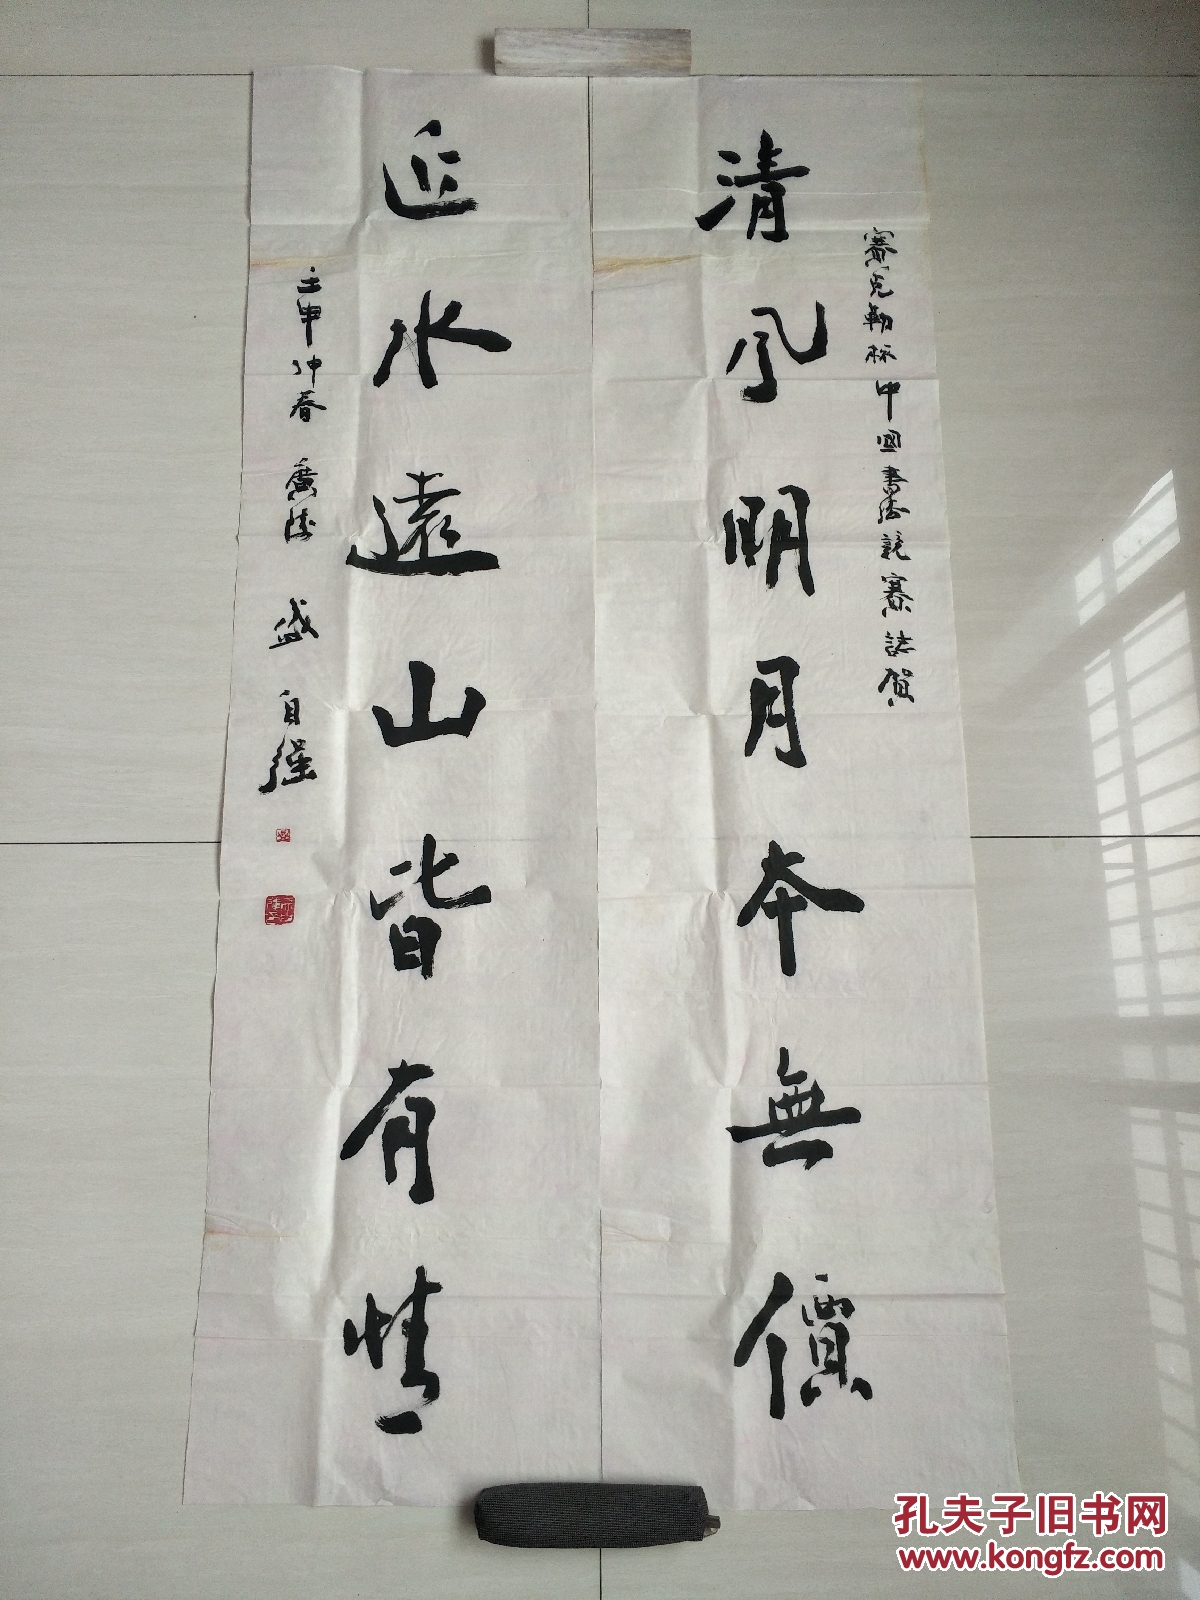 賽克勒杯中國書法競賽誌賀
清風明月本無價
近水遠山皆有情
壬申仲春 廣德 盛自强
孔夫子旧书网
www.kongfz.com